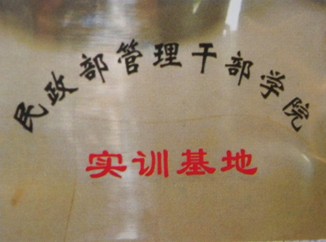 民政部管理干部学院
实训基地